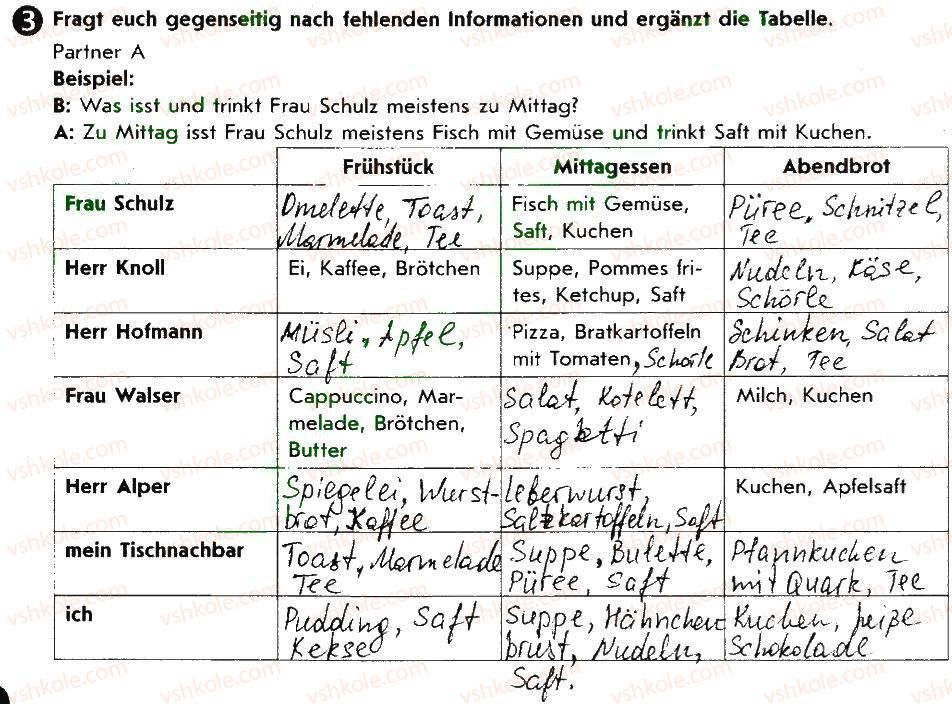 3 Fragt euch gegenseitig nach fehlenden Informationen und ergänzt die Tabelle.
Partner A
Beispiel:
B: Was isst und trinkt Frau Schulz meistens zu Mittag?
A: Zu Mittag isst Frau Schulz meistens Fisch mit Gemüse und trinkt Saft mit Kuchen.
Frühstück Mittagessen Abendbrot
Frau Schulz
Omelette, Toast,
Marmelade, Tee
Fisch mit Gemüse,
Saft, Kuchen
Püree, Schnitzel,
Tee
Herr Knoll
Ei, Kaffee, Brötchen
Suppe, Pommes fri-
tes, Ketchup, Saft
Nudeln, Käse,
Schörle
Herr Hofmann
Müsli, Apfel,
Saft
Pizza, Bratkartoffeln
mit Tomaten, Schorle
Schinken, Salat
Brot, Tee
Frau Walser
Cappuccino, Mar-
melade, Brötchen,
Butter
Salat, Kotelett,
Spagetti
Milch, Kuchen
Herr Alper
Spiegelei, Wurst-
brot, Kaffee
Leberwurst,
Salzkartoffeln, Saft
Kuchen, Apfelsaft
mein Tischnachbar
Toast, Marmelade
Tee
Suppe, Bulette,
Püree, Saft
Pfannkuchen
mit Quark, Tee
ich
Pudding, Saft
Kekse
Suppe, Hähnchen
brust, Nudeln,
Saft.
Kuchen, heiße
Schokolade
vshkole.com